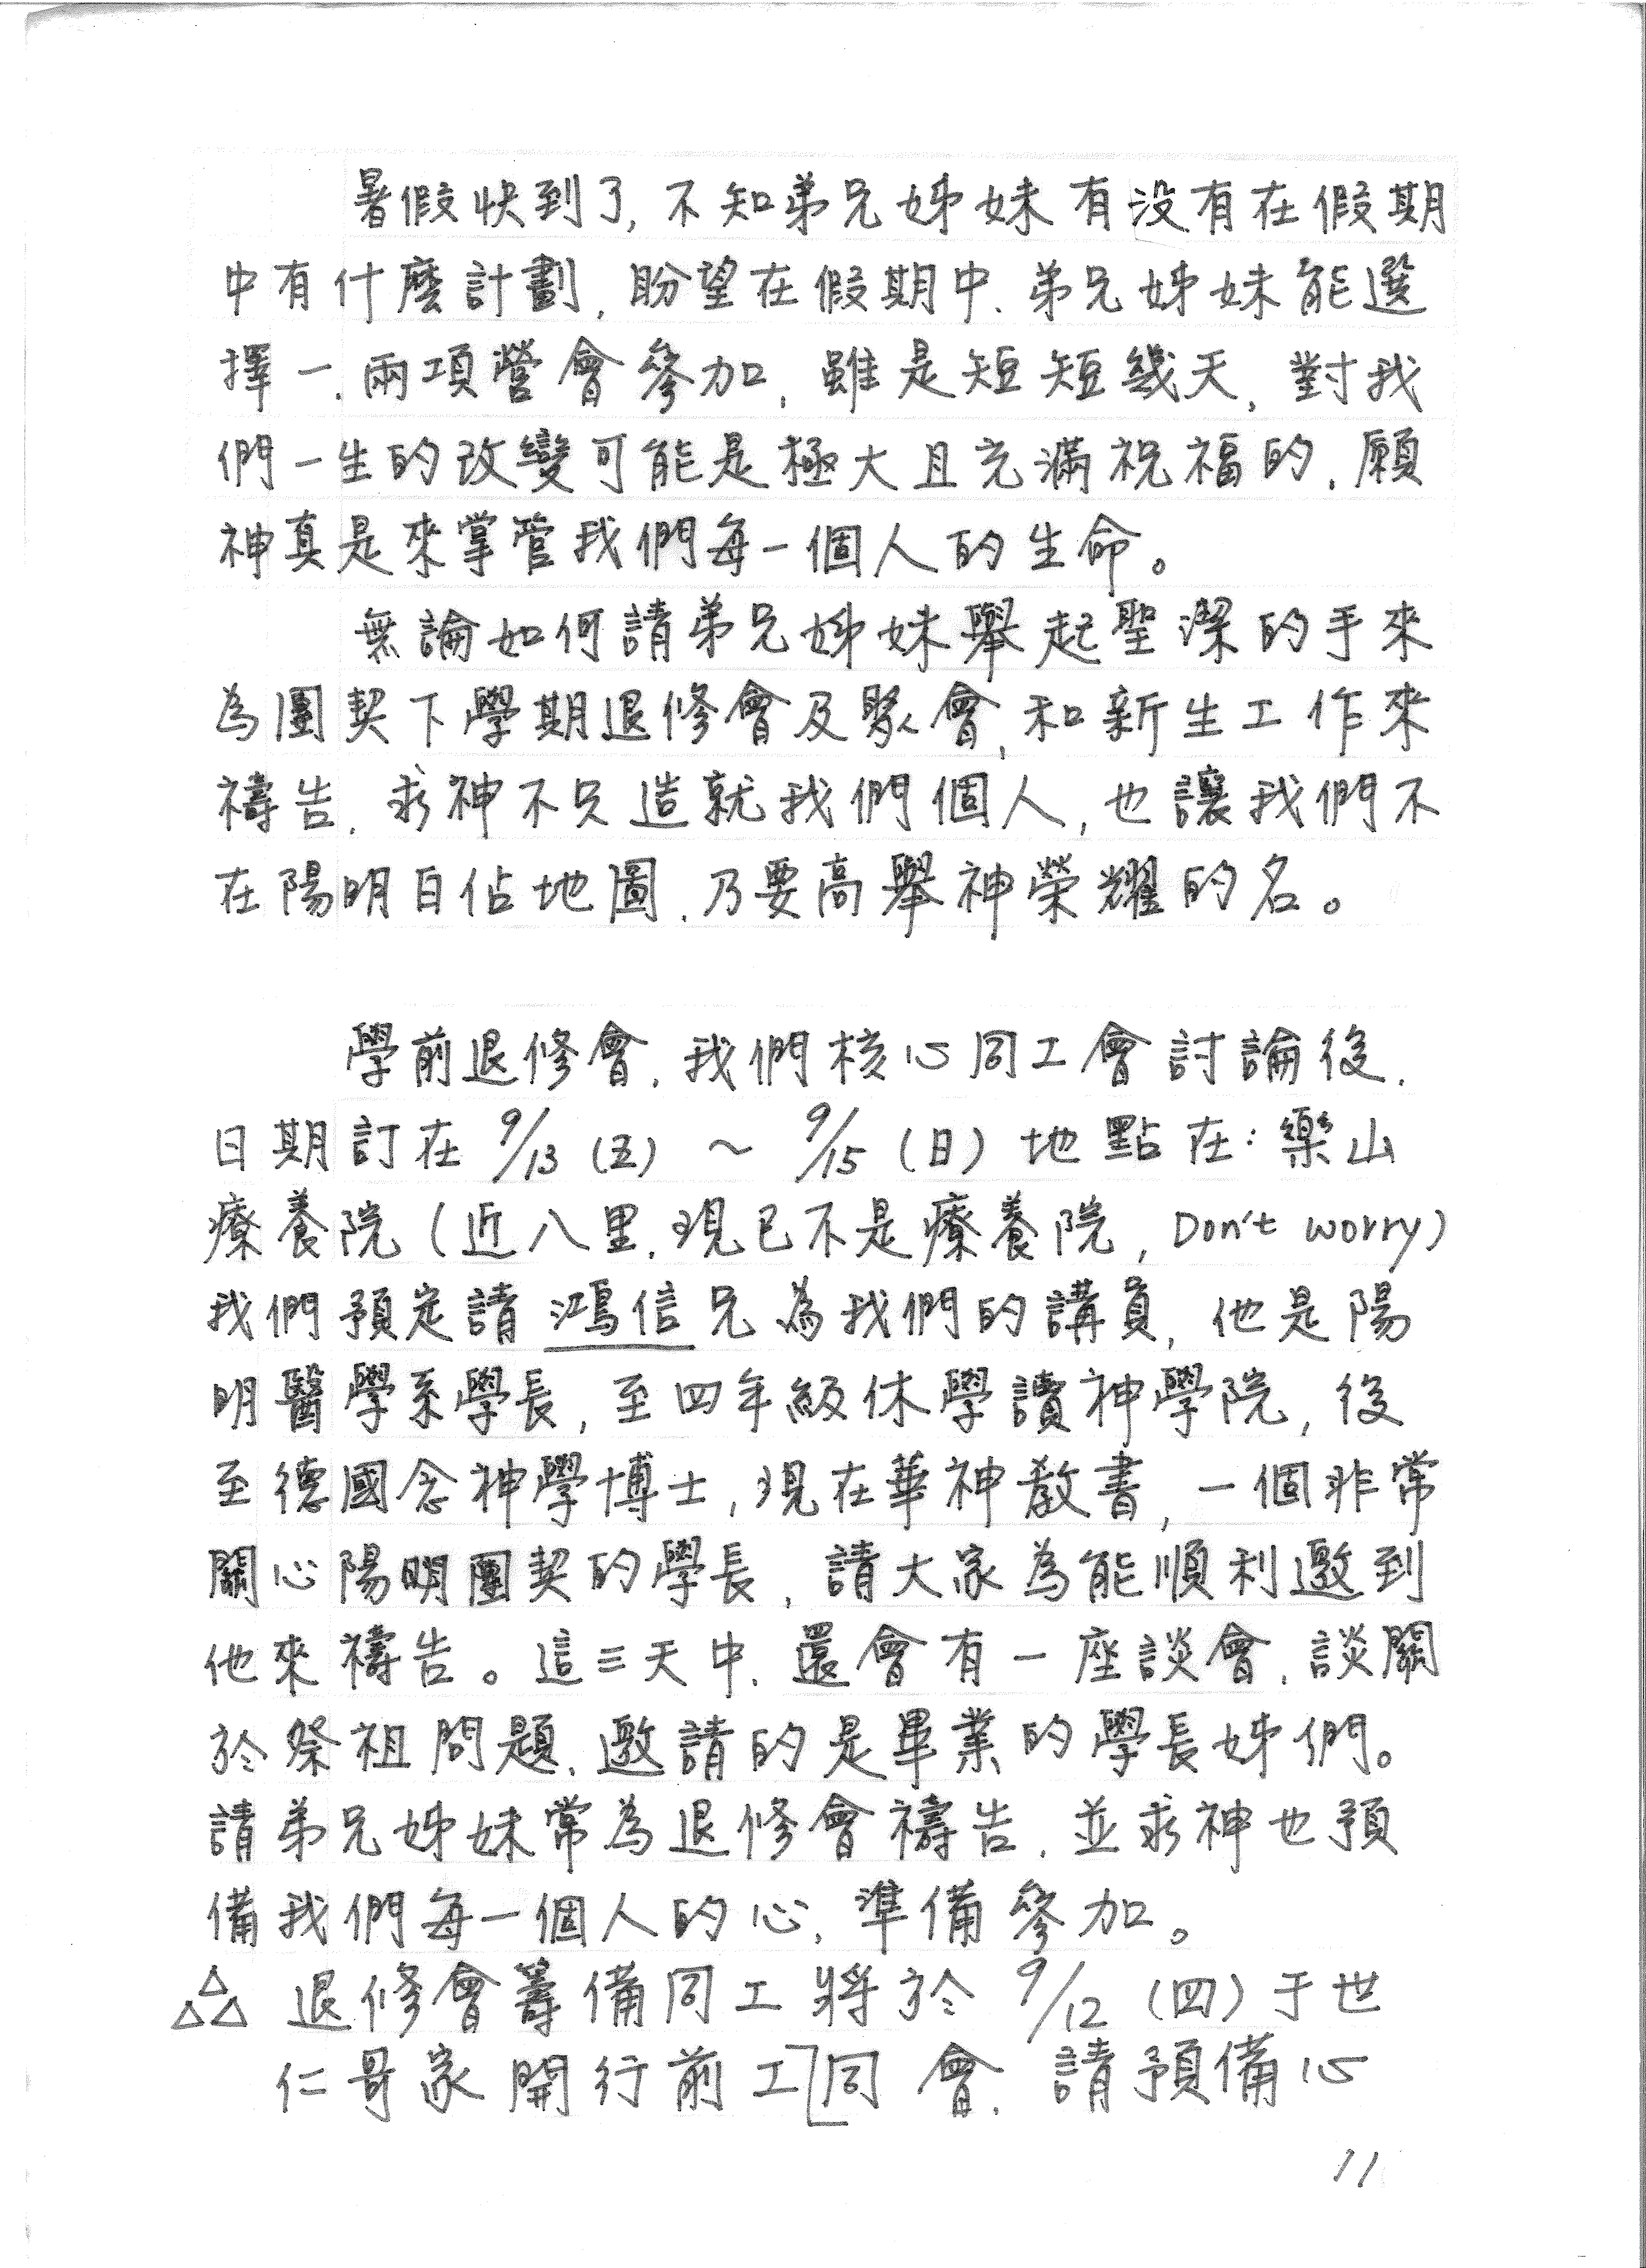 暑假快到了,不知弟兄姊妹有沒有在假期
中有什麼計劃,盼望在假期中、弟兄姊妹能選
擇一、兩項營會參加,雖是短短幾天,對我
們一生的改變可能是極大且充滿祝福的,願
神真是來掌管我們每一個人的生命。
無論如何請弟兄姊妹舉起聖潔的手來
為團契下學期退修會及聚會,和新生工作來
禱告,求神不只造就我們個人,也讓我們不
在陽明自佔地圖,乃要高舉神榮耀的名。
學前退修會,我們核心同工會討論後,
日期訂在 9/13 (五) ~ 9/15 (日) 地點在:樂山
療養院 (近八里,現已不是療養院, Don't worry)
我們預定請 鴻信兄為我們的講員,他是陽
明醫學系學長,至四年級休學讀神學院,後
至德國念神學博士,現在華神教書,一個非常
關心陽明團契的學長,請大家為能順利邀到
他來禱告。這三天中,還會有一座談會,談關
於祭祖問題,邀請的是畢業的學長姊們。
請弟兄姊妹常為退修會禱告,並求神也預
備我們每一個人的心,準備參加。
△△△ 退修會籌備同工將於 9/12 (四) 于世
仁哥家開行前工同會,請預備心
11